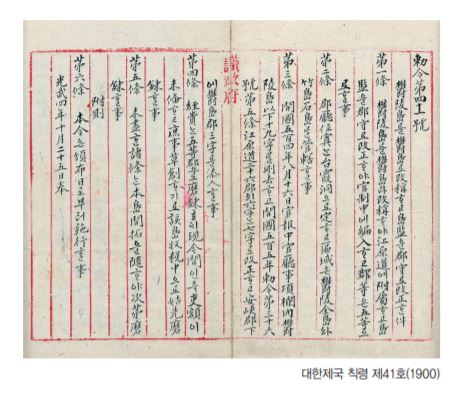 勅令第四十一號
鬱陵島을鬱島로改稱하고島監을郡守로改正한件
第一條 鬱陵島을鬱島라改稱하야江原道에附屬하고島
監을郡守로改正하야官制中에編入하고郡等은五等으
로할事
第二條 郡廳位寘는台霞洞으로定하고區域은鬱陵全島와
竹島石島를管轄할事
第三條 開國五百四年八月十六日官報中官廳事項欄內鬱
陵島以下十九字를刪去하고開國五百五年勅令第三十六
號第五條江原道二十六郡의六字는七字로改正하고安峽郡下
議政府
에鬱島郡三字를添入할事
第四條 經費는五等郡으로磨鍊하되現今間인즉吏額이
未備하고庶事草創하기로該島收稅中으로姑先磨
鍊할事
第五條 未盡한諸條는本島開拓을隨하야次第磨
鍊할事
附則
第六條 本令은頒布日로부터施行할事
光武四年十月二十五日奉
대한제국 칙령 제41호(1900)